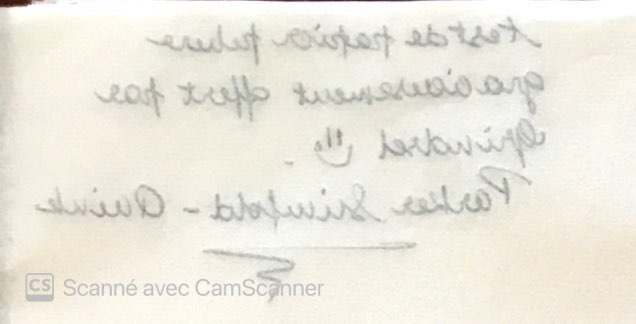 test de papier pelure
gracieusement offert par
Grindrel !!:)
Parker Sinfold - Quink
CS Scanné avec CamScanner